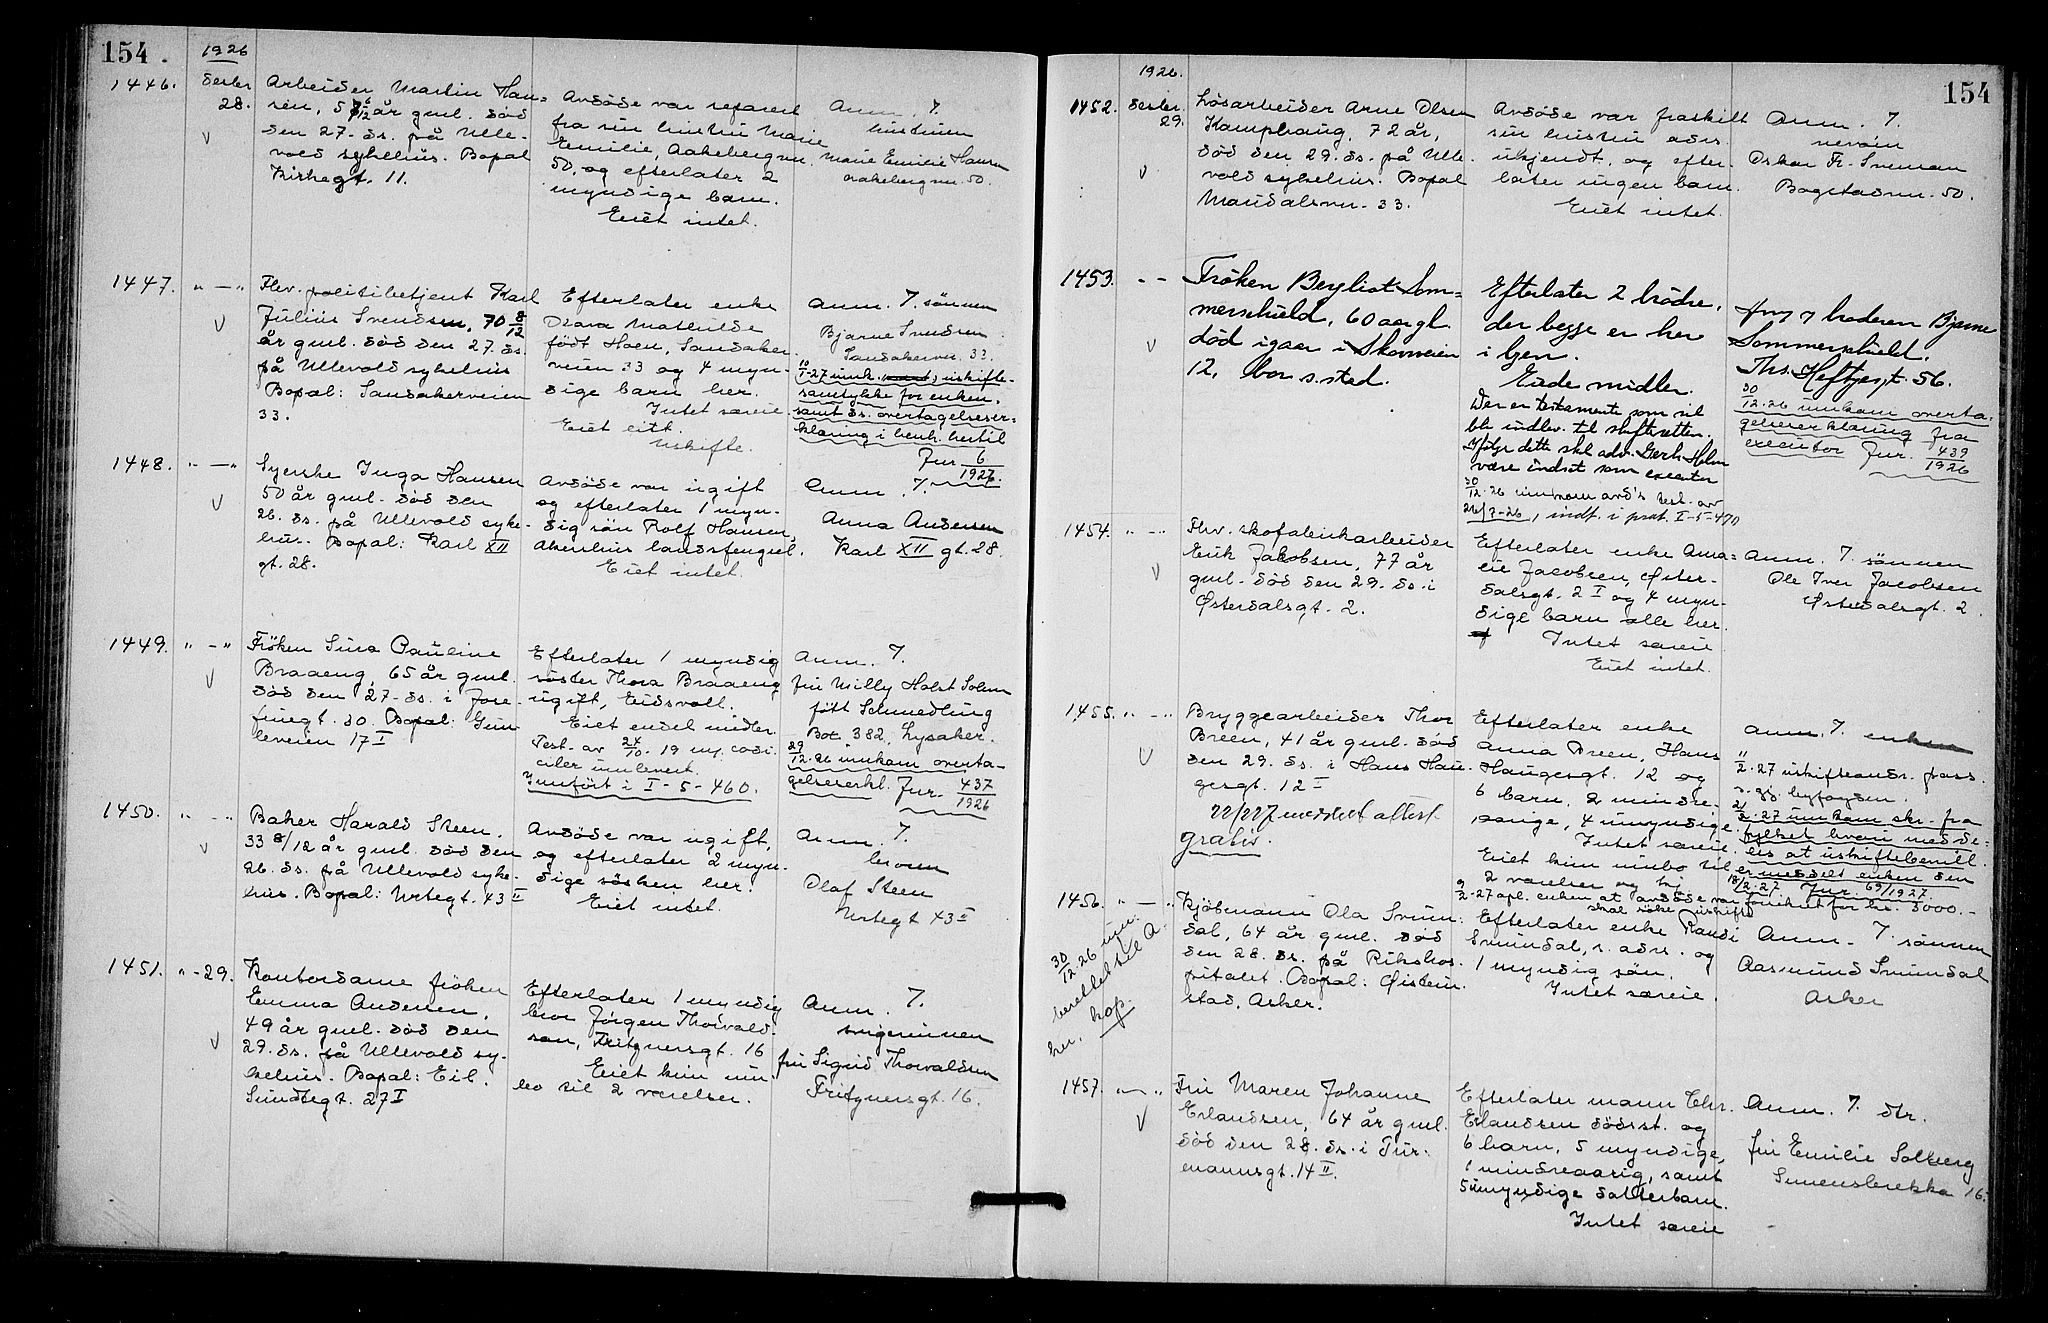 154.
1926
1446.
Desbr
28.
Arbeider Martin Han=
sen, 5 år gml. död
den 27. ds. på Ulle-
vold sykehus. Bopal
Kirkegt. 11.
Avdöde var separert
fra sin hustru Marie
Emilie, Aakebergvn.
50, og efterlater 2
myndige barn.
Eiet intet.
Anm. 7.
hustruen
Marie Emilie Hansen
Aakebergvn. 50.
1447. " — "
Fhv. politibetjent Karl
Julius Svendsen, 70 8/12
år gml. död den 27. ds.
på Ullevold sykehus
Bopal: Sandakerveien
33.
Efterlater enke
Mathilde
født Hoen, Sandaker-
veien 33 og 4 myn-
dige barn her.
Intet særeie
Eiet litt.
Uskifte.
Anm. 7. sönnen
Bjarne Svendsen
Sandakervn. 33.
10/1-27 innk. uskifte-
samtykke for enken,
samt ds. overtagelseser-
klæring i henh. hertil
Jur 6/1927.
1448. " — "
Syerske Inga Hansen
50 år gml. död den
26. ds. på Ullevold syke-
hus. Bopal: Karl XII
gt. 28.
Avdöde var ugift
og efterlater 1 myn-
dig sön Rolf Hansen,
Akershus landsfengsel.
Eiet intet.
Anm. 7.
Anna Andersen
Karl XII gt. 28.
1449. " — "
Fröken Sina Pauline
Braaeng, 65 år gml.
död den 27. ds. i Jose-
finegt. 30. Bopal: Gim
leveien 17 I
Efterlater 1 myndig
söster Thora Braaeng
ugift, Eidsvoll.
Eiet endel midler
Test. av 24/10-19 m/ codi
ciler innlevert.
Innfört i I-5-460.
Anm. 7.
fru Milly Holst Solem
født Schmedling
Box 382, Lysaker.
29/12-26 innkom overta-
gelseserkl. Jur. 437/1926
1450. " — "
Baker Harald Steen.
33 8/12 år gml. död den
26. ds. på Ullevold syke-
hus. Bopal: Urtegt. 43 II
Avdöde var ugift,
og efterlater 2 myn-
dige sösken her.
Eiet intet.
Anm. 7.
broren
Olaf Steen
Urtegt 43 II
1451. " - 29.
Kontordame fröken
Emma Andersen,
49 år gml. död den
29. ds. på Ullevold sy-
kehus. Bopal: Eil.
Sundtsgt. 27 I
Efterlater 1 myndig
bror Jörgen Thorvald-
sen, Fritznersgt. 16
Eiet kun inn
bo til 2 værelser.
Anm. 7.
svigerinnen
fru Sigrid Thorvaldsen
Fritznersgt. 16.
154
1926.
1452. Desbr.
29.
Lösarbeider Arne Olsen
Kamphaug, 72 år,
död den 29. ds. på Ulle-
vold sykehus. Bopal
Maridalsvn. 33.
Avdöde var fraskilt
sin hustru adrs.
ukjendt, og efter-
later ingen barn.
Eiet intet.
Anm. 7.
nevöin
Oskar Fr. Svensen
Bogstadvn. 50.
1453. " -
Fröken Bergliot Som=
merschield, 60 aar gl.
död igaar i Skovveien
12, bor s. sted.
Efterlater 2 brödre,
der begge er her
i byen.
Eiede midler.
Der er testamente som vil
bli indlev. til skifteretten.
Ifølge dette skal adv. Gerh. Holm
være indsat som executor
30/12-26 innkom avd's test. av
26/7-26, indt. i prot. I-5-470
Anm 7 broderen Bjarne
Sommerschield.
Ths. Heftyesgt. 56.
30/12-26 innkom overta-
gelseserklæring fra
executor Jur. 439/1926
1454. " — "
Fhv. skofabrikarbeider
Erik Jakobsen, 77 år
gml. död den 29. ds. i
Østerdalsgt. 2.
Efterlater enke Ama=
lie Jacobsen, Øster-
dalsgt. 2 I og 4 myn-
dige barn alle her.
Intet særeie
Eiet intet.
Anm. 7. sönnen
Ole Iver Jacobsen
Østerdalsgt. 2
1455. " — "
Bryggearbeider Thor
Breen, 41 år gml. död
den 29. ds. i Hans Hau-
gesgt. 12 I
22/2 27 meddelt attest.
gratis.
Efterlater enke
Anna Breen, Hans
Haugesgt. 12 og
6 barn, 2 mindre-
aarige, 4 umyndige.
Intet særeie.
Eiet kun innbo til
2 værelser og kj
9/2-27 opl. enken at avdöde var forsikret for kr. 5000.-
skal söke uskifte
Anm. 7. enken
11/2-27 uskifteandr. pass.
s. gj. byfogden.
21/2-27 innkom skr. fra
fylket hvori medde-
les at uskiftebevill.
er meddelt enken den
18/2-27. Jur. 69/1927.
1456. " — "
30/12-26 inn
berettet til A
ker. 
Kjöbmann Ola Svin-
dal, 64 år gml. död
den 28. ds. på Rikshos-
pitalet. Bopal: Øistein-
stad, Asker.
Efterlater enke Randi
Svindal, s. adrs. og
1 myndig sön.
Intet særeie.
Anm. 7. sönnen
Aasmund Svindal
Asker
1457. " — "
Fru Maren Johanne
Erlandsen, 64 år gml.
död den 28. ds. i Tur-
mannsgt. 14 II.
Efterlater mann Chr.
Erlandsen dödsst. og
6 barn, 5 myndige,
1 mindreaarig, samt
5 umyndige datterbarn.
Intet særeie
Anm. 7. dtr.
fru Emilie Solberg
Simensbrekka 16.